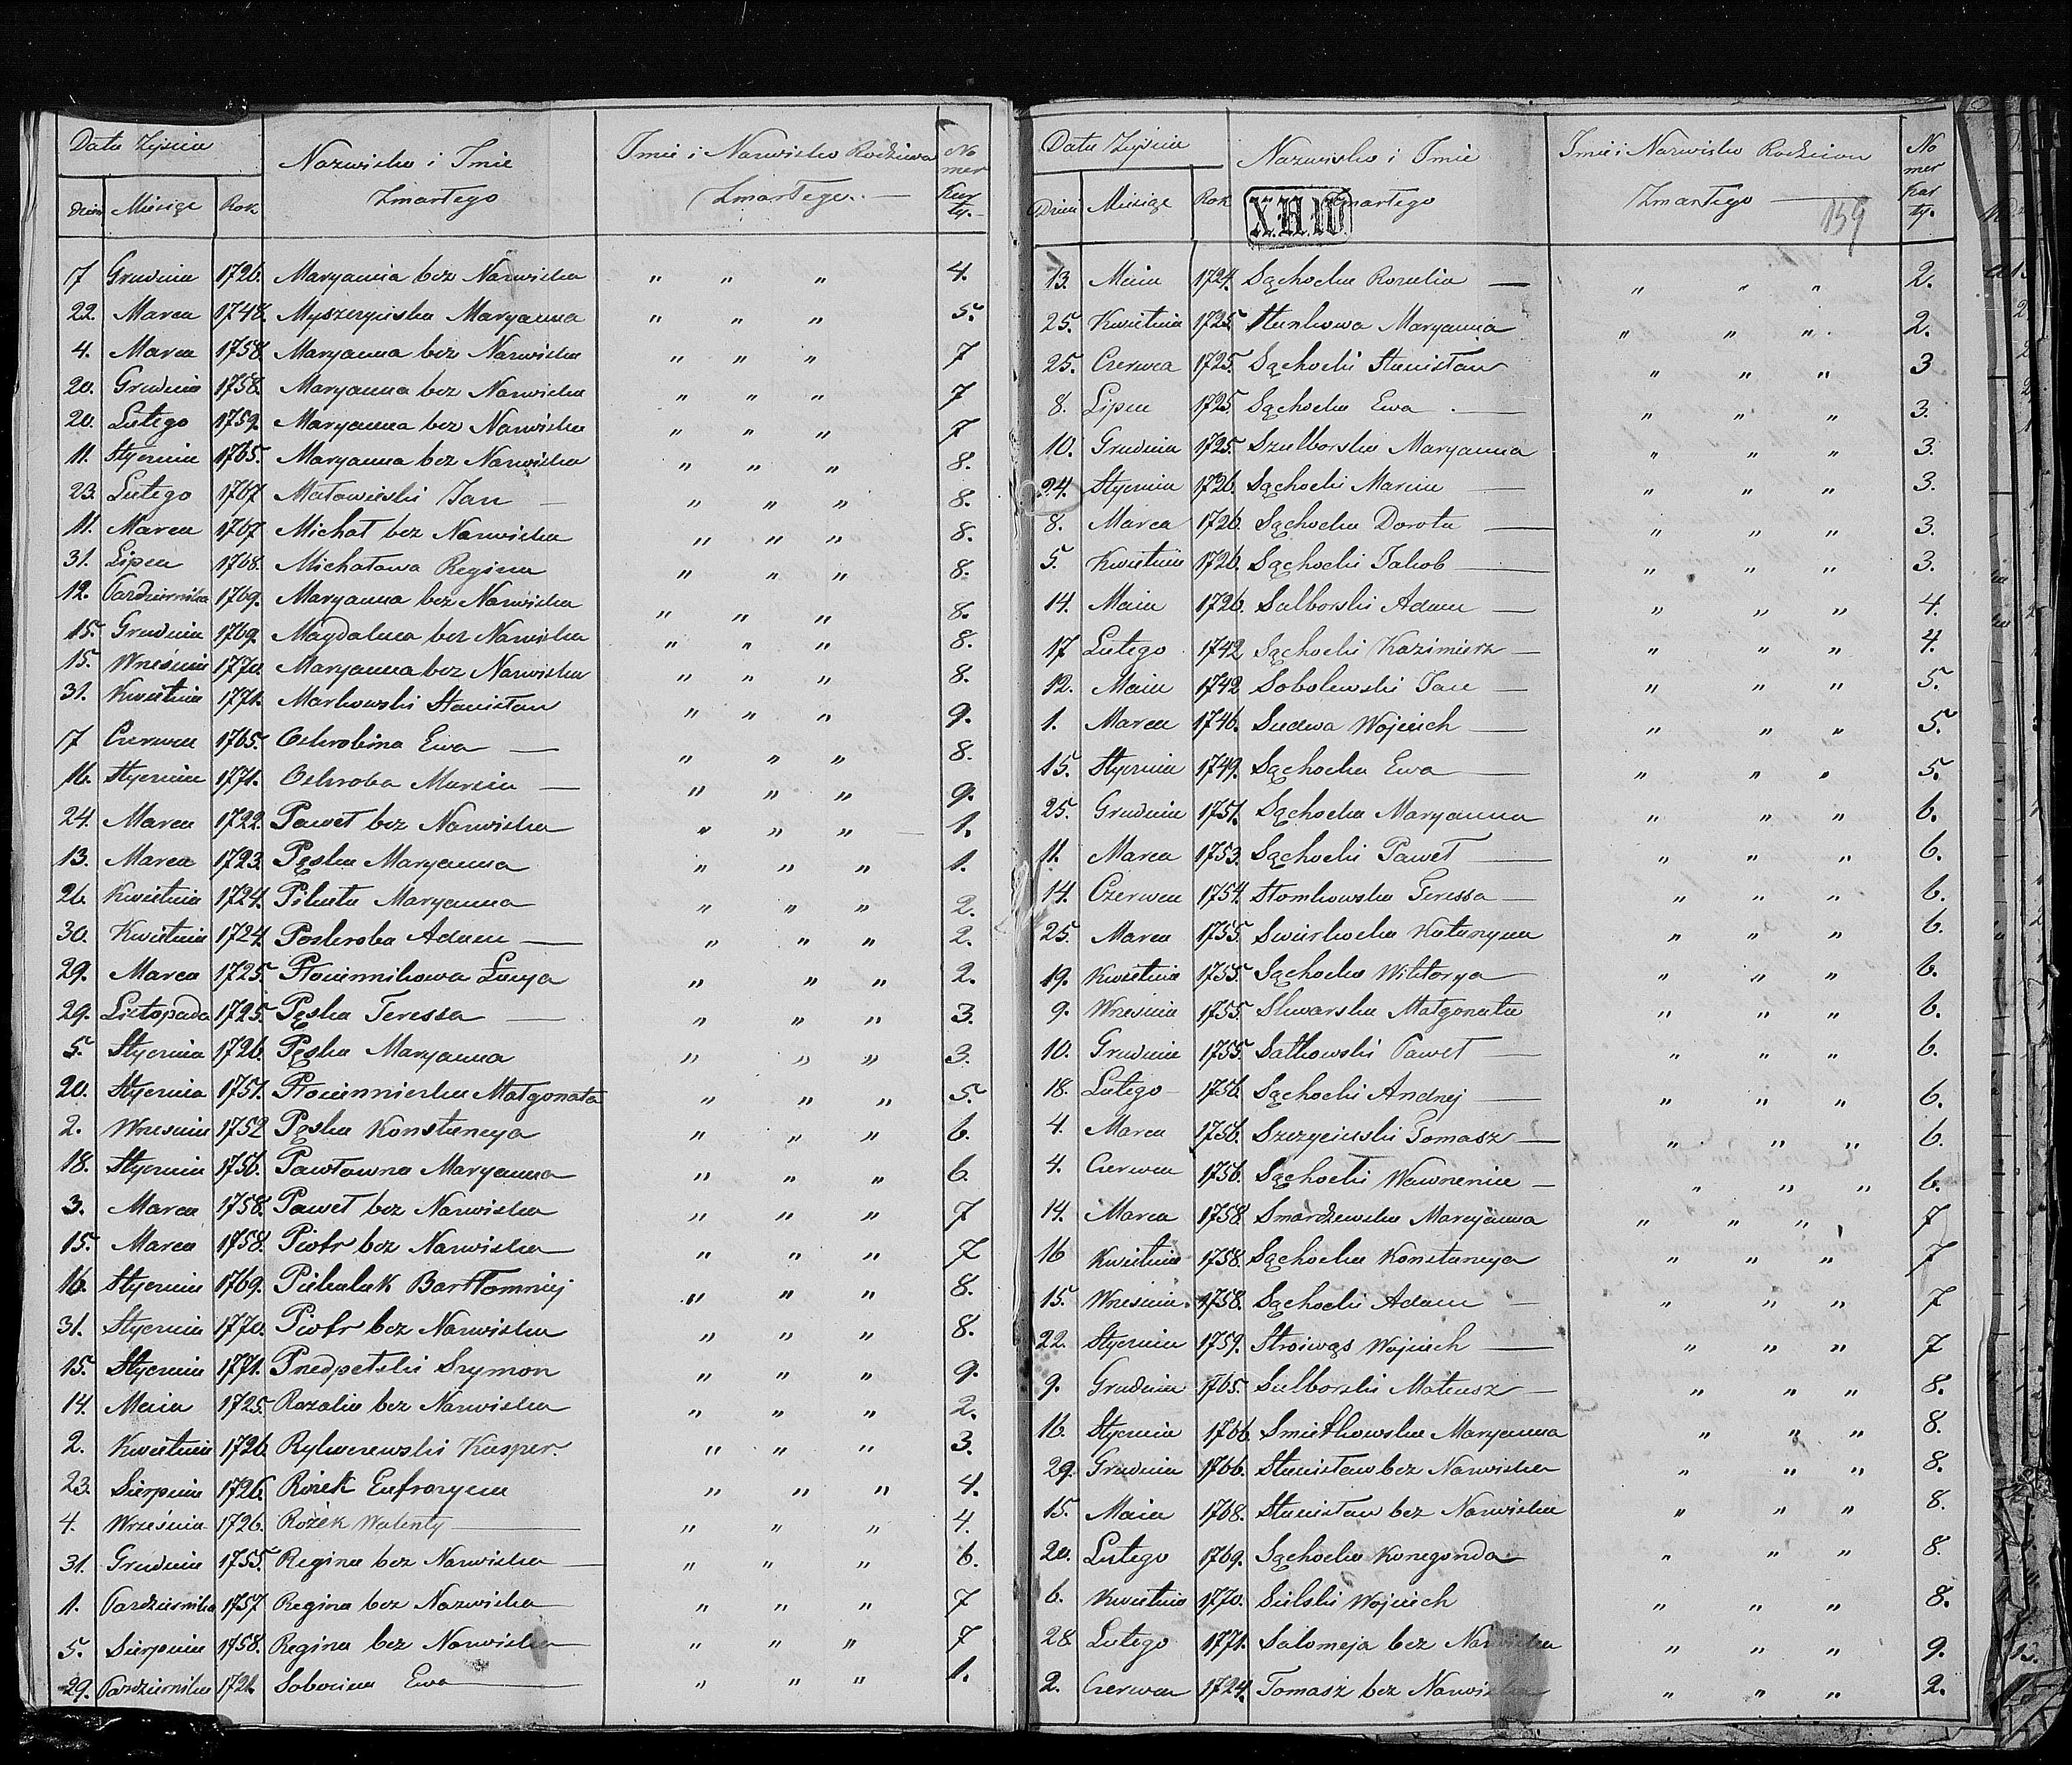 Data Zejścia
Nazwisko i Imie
Zmarłego
Imie i Nazwisko Rodziców
Zmarłego.
No
mer
Kar
ty.
Dzień Miesiąc Rok
17 Grudnia 1726. Maryanna bez Nazwiska " " " 4.
22. Marca 1748. Maryanna " " " 5.
4. Marca 1758. Maryanna bez Nazwiska " " " 7
20. Grudnia 1758. Maryanna bez Nazwiska " " " 7
20. Lutego 1759. Maryanna bez Nazwiska " " " 7
11. Stycznia 1765. Maryanna bez Nazwiska " " " 8.
23. Lutego 1767 Małowieski Jan " " " 8.
11. Marca 1767 Michał bez Nazwiska " " " 8.
31. Lipca 1768. Michałowa Regina " " " 8.
12. Październka 1769. Maryanna bez Nazwiska " " " 8.
15. Grudnia 1769. Magdalena bez Nazwiska " " " 8.
15. Wrześnie 1770. Maryanna bez Nazwiska " " " 8.
31. Kwietnia 1771. Markowski Stanisław " " " 9.
17 Czerwca 1765. Oskrobina Ewa " " " 8.
16. Stycznia 1771. Oskroba Marcin " " " 9.
24. Marca 1722. Paweł bez Nazwiska " " " 1.
13. Marca 1723. Pęska Maryanna " " " 1.
26. Kwietnia 1724. Pikuta Maryanna " " " 2.
30. Kwietnia 1724. Poskroba Adam " " " 2.
29. Marca 1725. Płociennikowa Łucya " " " 2.
29. Listopada 1725. Pęska Teressa " " " 3.
5. Stycznia 1726. Pęska Maryanna " " " 3.
20. Stycznia 1751. Płocienniczka Małgorzata " " " 5.
2. Wrzesnia 1752 Pęska Konstancya " " " 6.
18. Stycznia 1756. Pawłowna Maryanna " " " 6.
3. Marca 1758. Paweł bez Nazwiska " " " 7
15. Marca 1758. Piotr bez Nazwiska " " " 7
16. Stycznia 1769. Piekulak Bartłomniej " " " 8.
31. Stycznia 1770. Piotr bez Nazwiska " " " 8.
15. Stycznia 1771. Przedpełski Szymon " " " 9.
14. Maia 1725. Rozalia bez Nazwiska " " " 2.
2. Kwietnia 1726. Rykaczewski Kasper. " " " 3.
23. Sierpnia 1726. Rożek Eufrozyna " " " 4.
4. Września 1726. Rożek Walenty " " " 4.
31. Grudnia 1755. Regina bez Nazwiska " " " 6.
1. Październka 1757 Regina bez Nazwiska " " " 7
5. Sierpnia 1758. Regina bez Nazwiska " " " 7
29. Październka 1721. Sobocina Ewa " " " 1.
Data Zejścia
Nazwisko i Imie
Zmarłego
Imie i Nazwisko Rodziców
Zmarłego
No
mer
Kar
ty.
Dzień Miesiąc Rok
X.H.10.
159
13. Maia 1724. Sąchocka Rozalia " " " 2.
25. Kwietnia 1725. Maryanna " " " 2.
25. Czerwca 1725. Sąchocki Stanisław " " " 3
8. Lipca 1725. Sąchocka Ewa " " " 3.
10. Grudnia 1725. Szulborska Maryanna " " " 3.
24. Stycznia 1726. Sąchocki Marcin " " " 3.
8. Marca 1726. Sąchocka Dorota " " " 3.
5. Kwietnia 1726. Sąchocki Jakob " " " 3.
14. Maia 1726. Sulborski Adam " " " 4.
17 Lutego 1742 Sąchocki Kazimierz " " " 4.
12. Maia 1742 Sobolewski Jan " " " 5.
1. Marca 1746. Sudwa Wojciech " " " 5.
15. Stycznia 1749. Sąchocka Ewa " " " 5.
25. Grudnia 1751. Sąchocka Maryanna " " " 6.
11. Marca 1753. Sąchocki Paweł " " " 6.
14. Czerwca 1754. Słomkowska Teressa " " " 6.
25. Marca 1755. Swierkocka Katarzyna " " " 6.
19. Kwietnia 1755. Sąchocka Wiktorya " " " 6.
9. Wrzesnia 1755. Skwarska Małgorzata " " " 6.
10. Grudnia 1755. Sutkowski Paweł " " " 6.
18. Lutego 1756. Sąchocki Andrzej " " " 6.
4. Marca 1756. Szczycieński Tomasz " " " 6.
4. Czerwca 1756. Sąchocki Wawrzeniec " " " 6.
14. Marca 1758. Smardzewska Maryanna " " " 7
16 Kwietnia 1758. Sąchocka Konstancya " " " 7
15. Wrzesnia. 1758. Sąchocki Adam " " " 7
22. Stycznia 1759. Stroiwąs Wojciech " " " 7
9. Grudnia 1765. Sulborski Mateusz " " " 8.
16. Stycznia 1766. Smietkowska Maryanna " " " 8.
29. Grudnia 1766. Stanisław bez Nazwiska " " " 8.
15. Maia 1768. Stanisław bez Nazwiska " " " 8.
20. Lutego 1769. Sąchocka Konegonda " " " 8.
6. Kwietnia 1770. Sielski Wojciech " " " 8.
28. Lutego 1771. Salomeja bez Nazwiska " " " 9.
2. Czerwca 1724. Tomasz bez Nazwiska " " " 2.